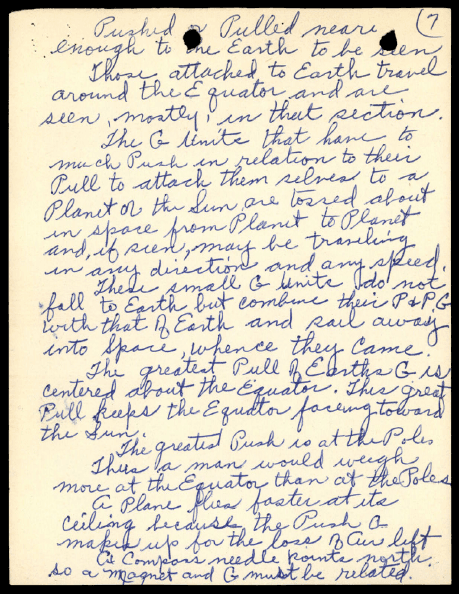 (7
Pushed or Pulled near
enough to the Earth to be seen
Those attached to Earth travel
around the Equator and are
seen, mostly, in that section.
The G Units that have to
much Push in relation to their
Pull to attach them selves to a
Planet or the Sun, are tossed about
in space from Planet to Planet
and, if seen, may be traveling
in any direction and any speed.
These small G Units do not
fall to Earth but combine their P & P.G
with that of Earth and sail away
into Space, whence they came.
The greatest Pull of Earths G is
centered about the Equator. This great
Pull keeps the Equator facing toward
the Sun.
The greatest Push is at the Poles
Thus a man would weigh
more at the Equator than at the Poles
A Plane flies faster at its
ceiling because the Push G
makes up for the loss of Air left
A Compass needle points north.
so a magnet and G must be related.